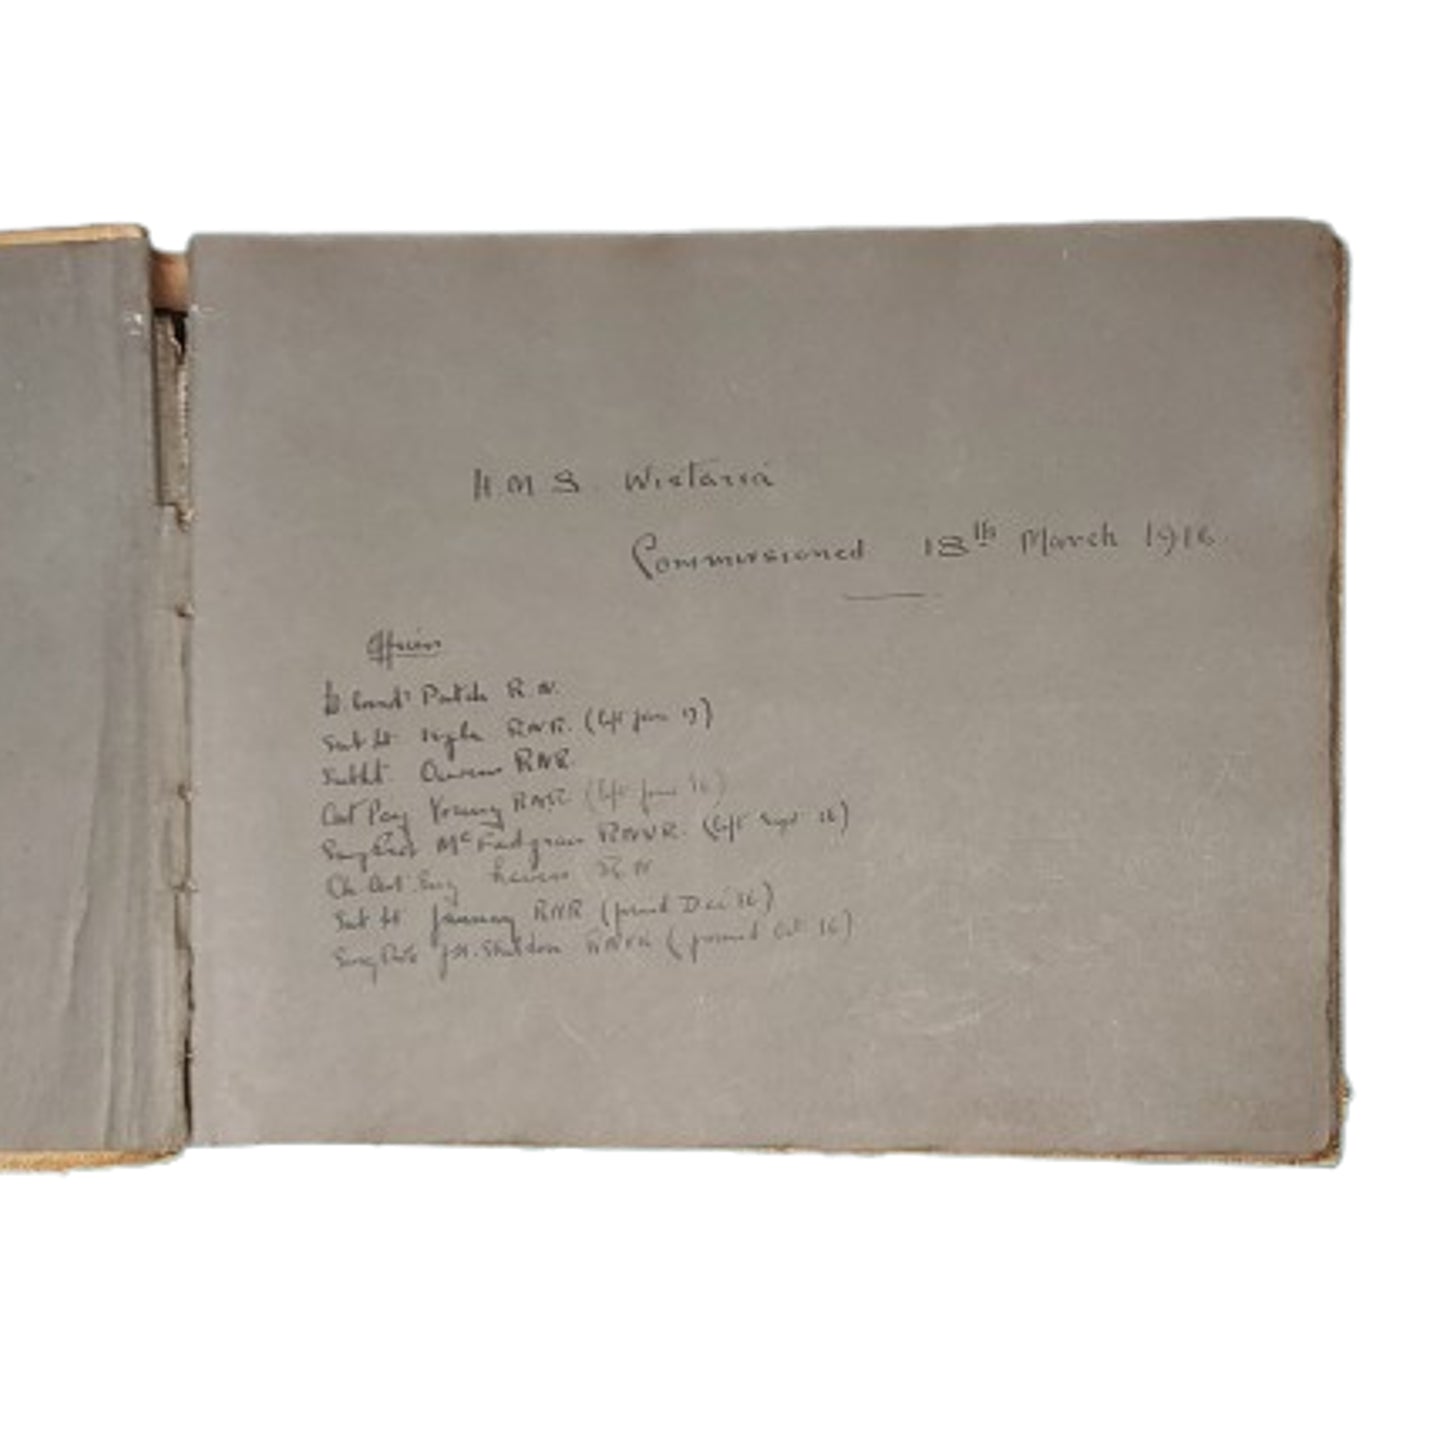 H M S. Wistaria
Commissioned 18th March 1916
Officers
Lt Comdr Patch R.N.
Sub Lt RNR. (left Jan 17)
Sub Lt Owens RNR
Asst Pay Young RNR (left June 16)
Surg Prob McFadyean RNVR. (left Sept 16)
Ch Art Eng R N
Sub Lt January RNR (joined Dec 16)
Surg Prob J.H. Sheldon RNVR (joined Oct 16)